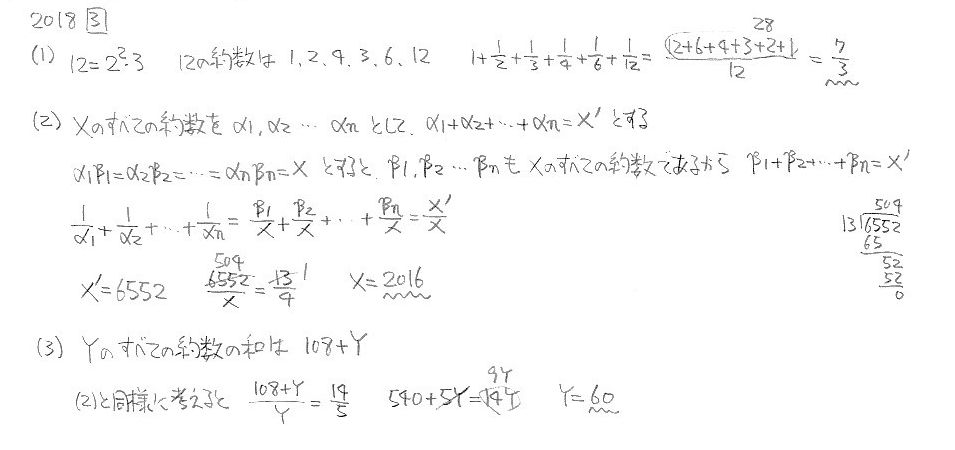 2018 3
(1) 12=2²·3 12の約数は 1, 2, 4, 3, 6, 12 1+1/2+1/3+1/4+1/6+1/12= (12+6+4+3+2+1)/12 28 = 7/3
(2) Xのすべての約数を α1, α2 … αn として、α1+α2+…+αn=X' とする
α1β1=α2β2=…=αnβn=X とすると、β1, β2 … βnも Xのすべての約数であるから β1+β2+…+βn=X'
1/α1+1/α2+…+1/αn=β1/X+β2/X+…+βn/X=X'/X
X'=6552 504 6552/X=13/4 1 X=2016
504
13)6552
65
52
52
0
(3) Yのすべての約数の和は 108+Y
(2)と同様に考えると (108+Y)/Y=14/5 540+5Y=14Y 9Y Y=60